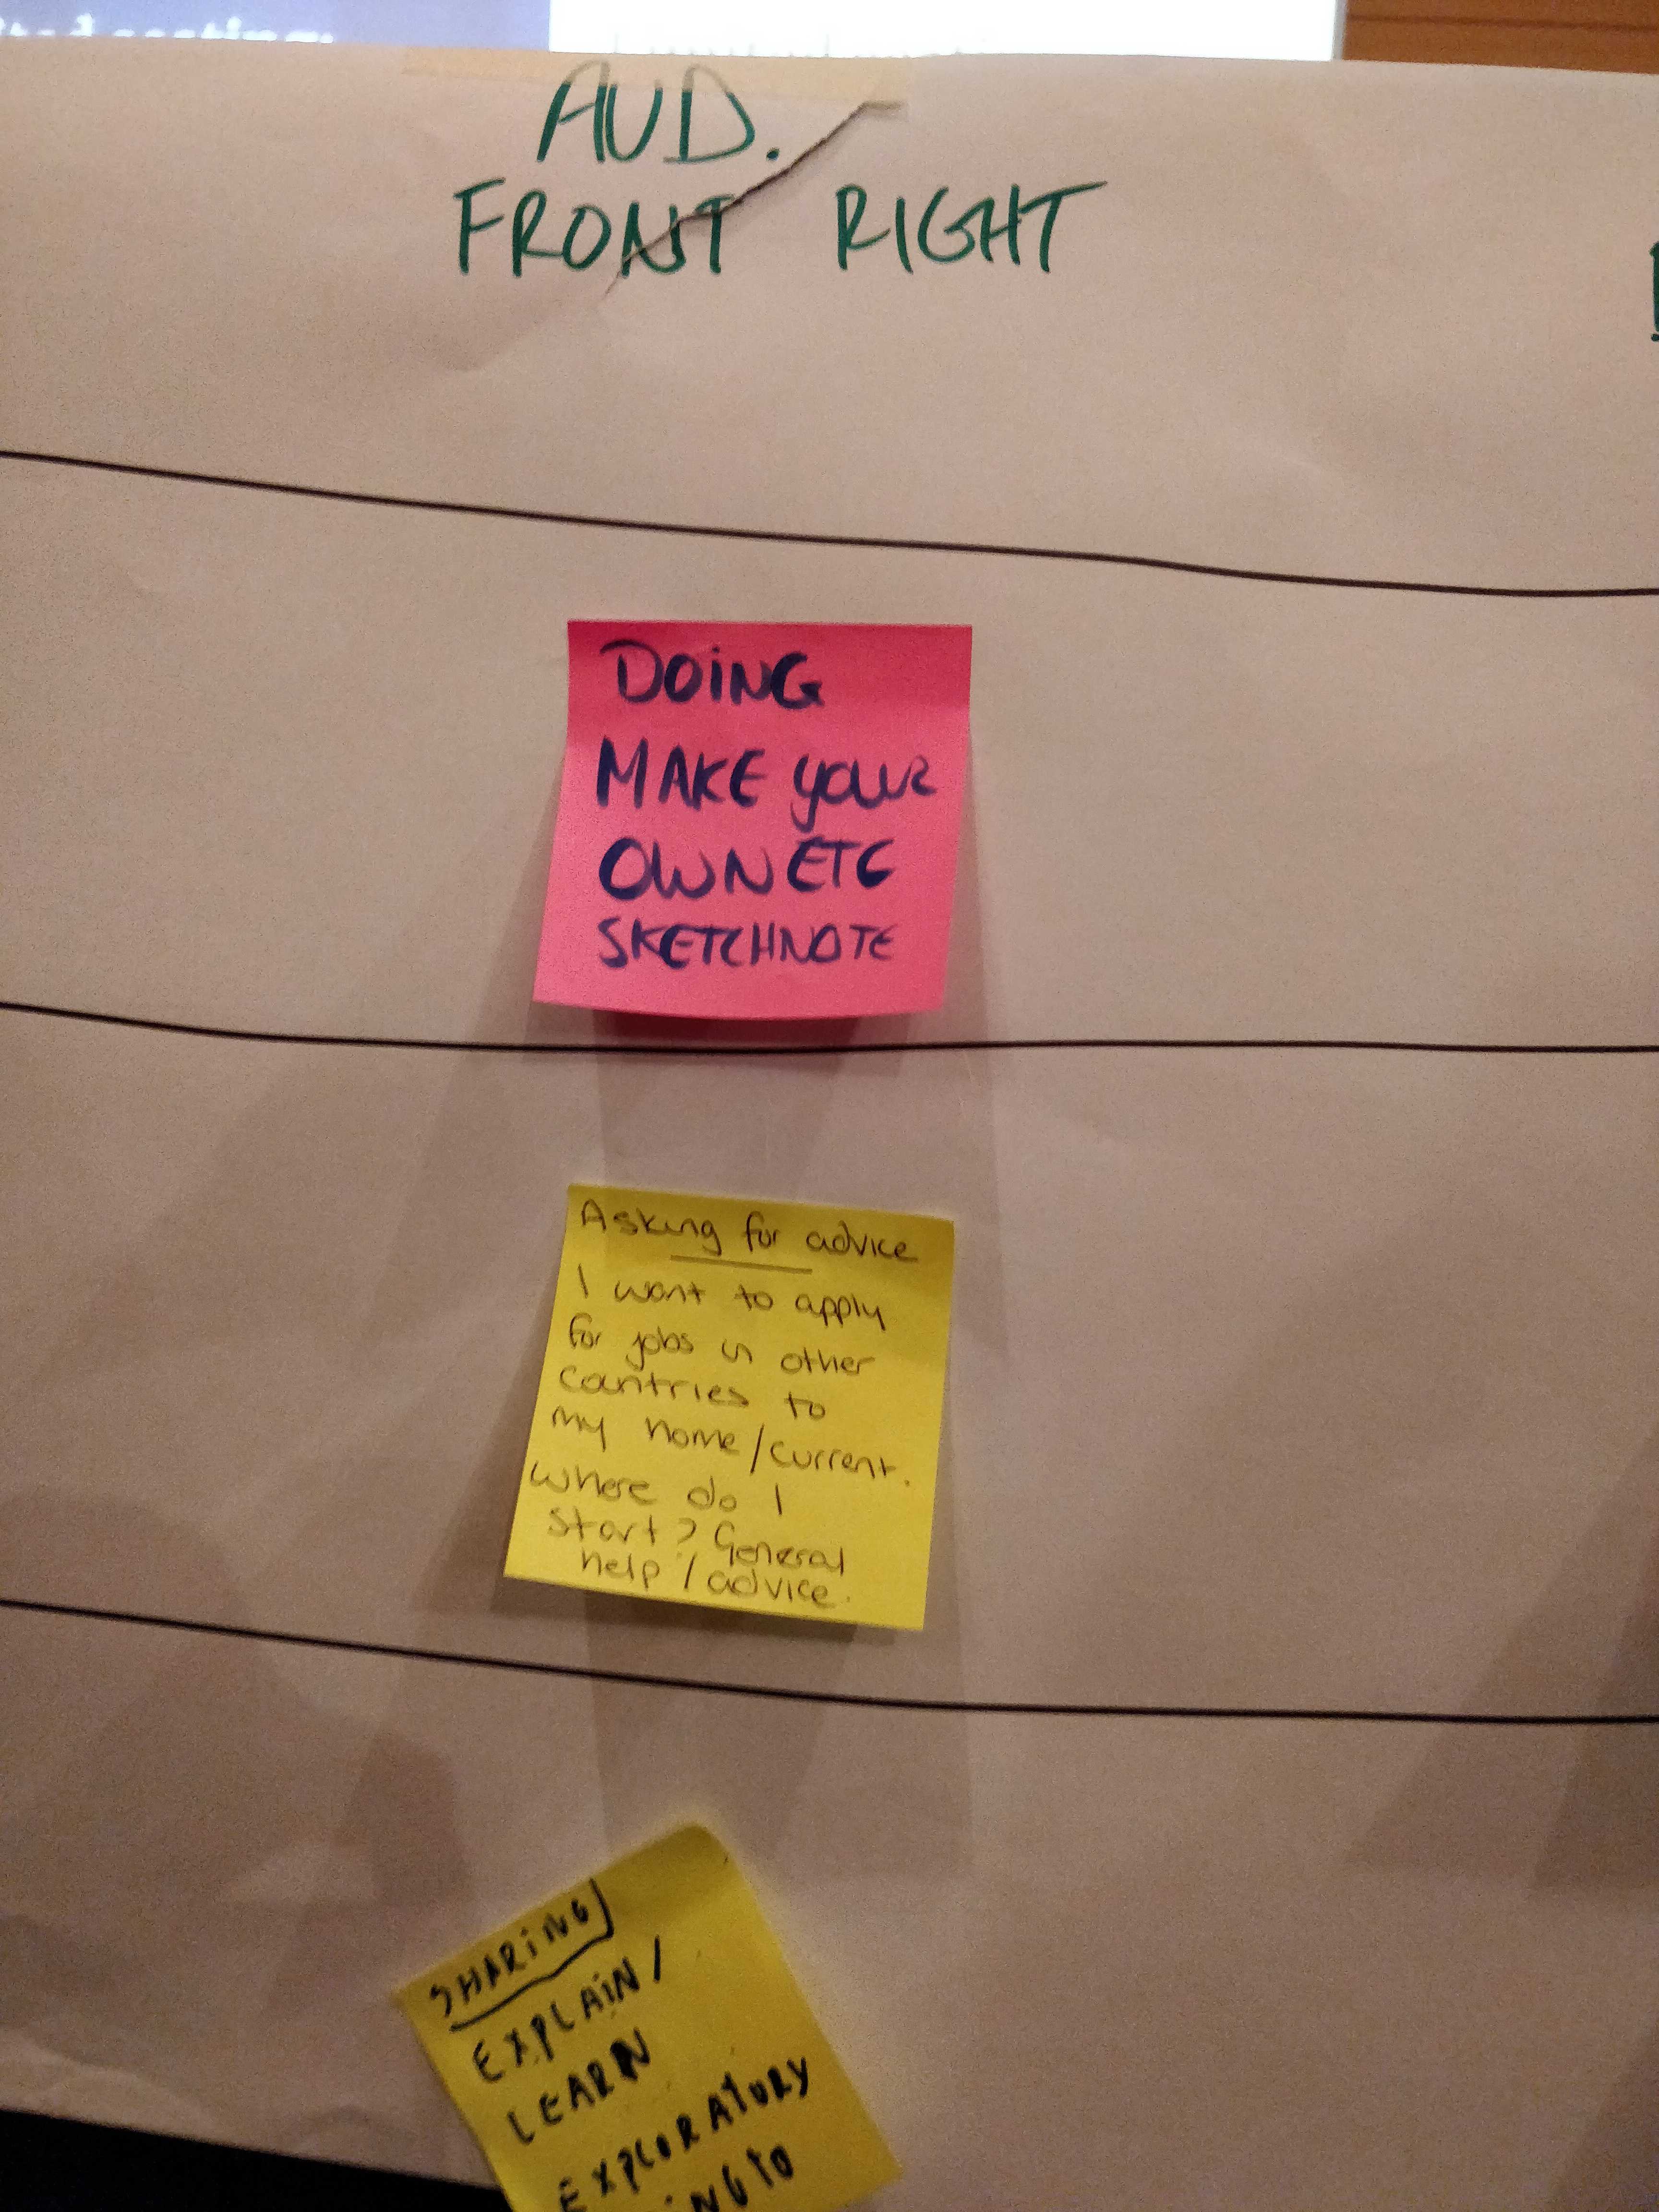 AUD.
FRONT RIGHT
DOING
MAKE YOUR
OWN ETC
SKETCHNOTE
Asking for advice
I want to apply
for jobs in other
countries to
my home/current.
Where do I
start? General
help / advice.
SHARING
EXPLAIN /
LEARN
EXPLORATORY